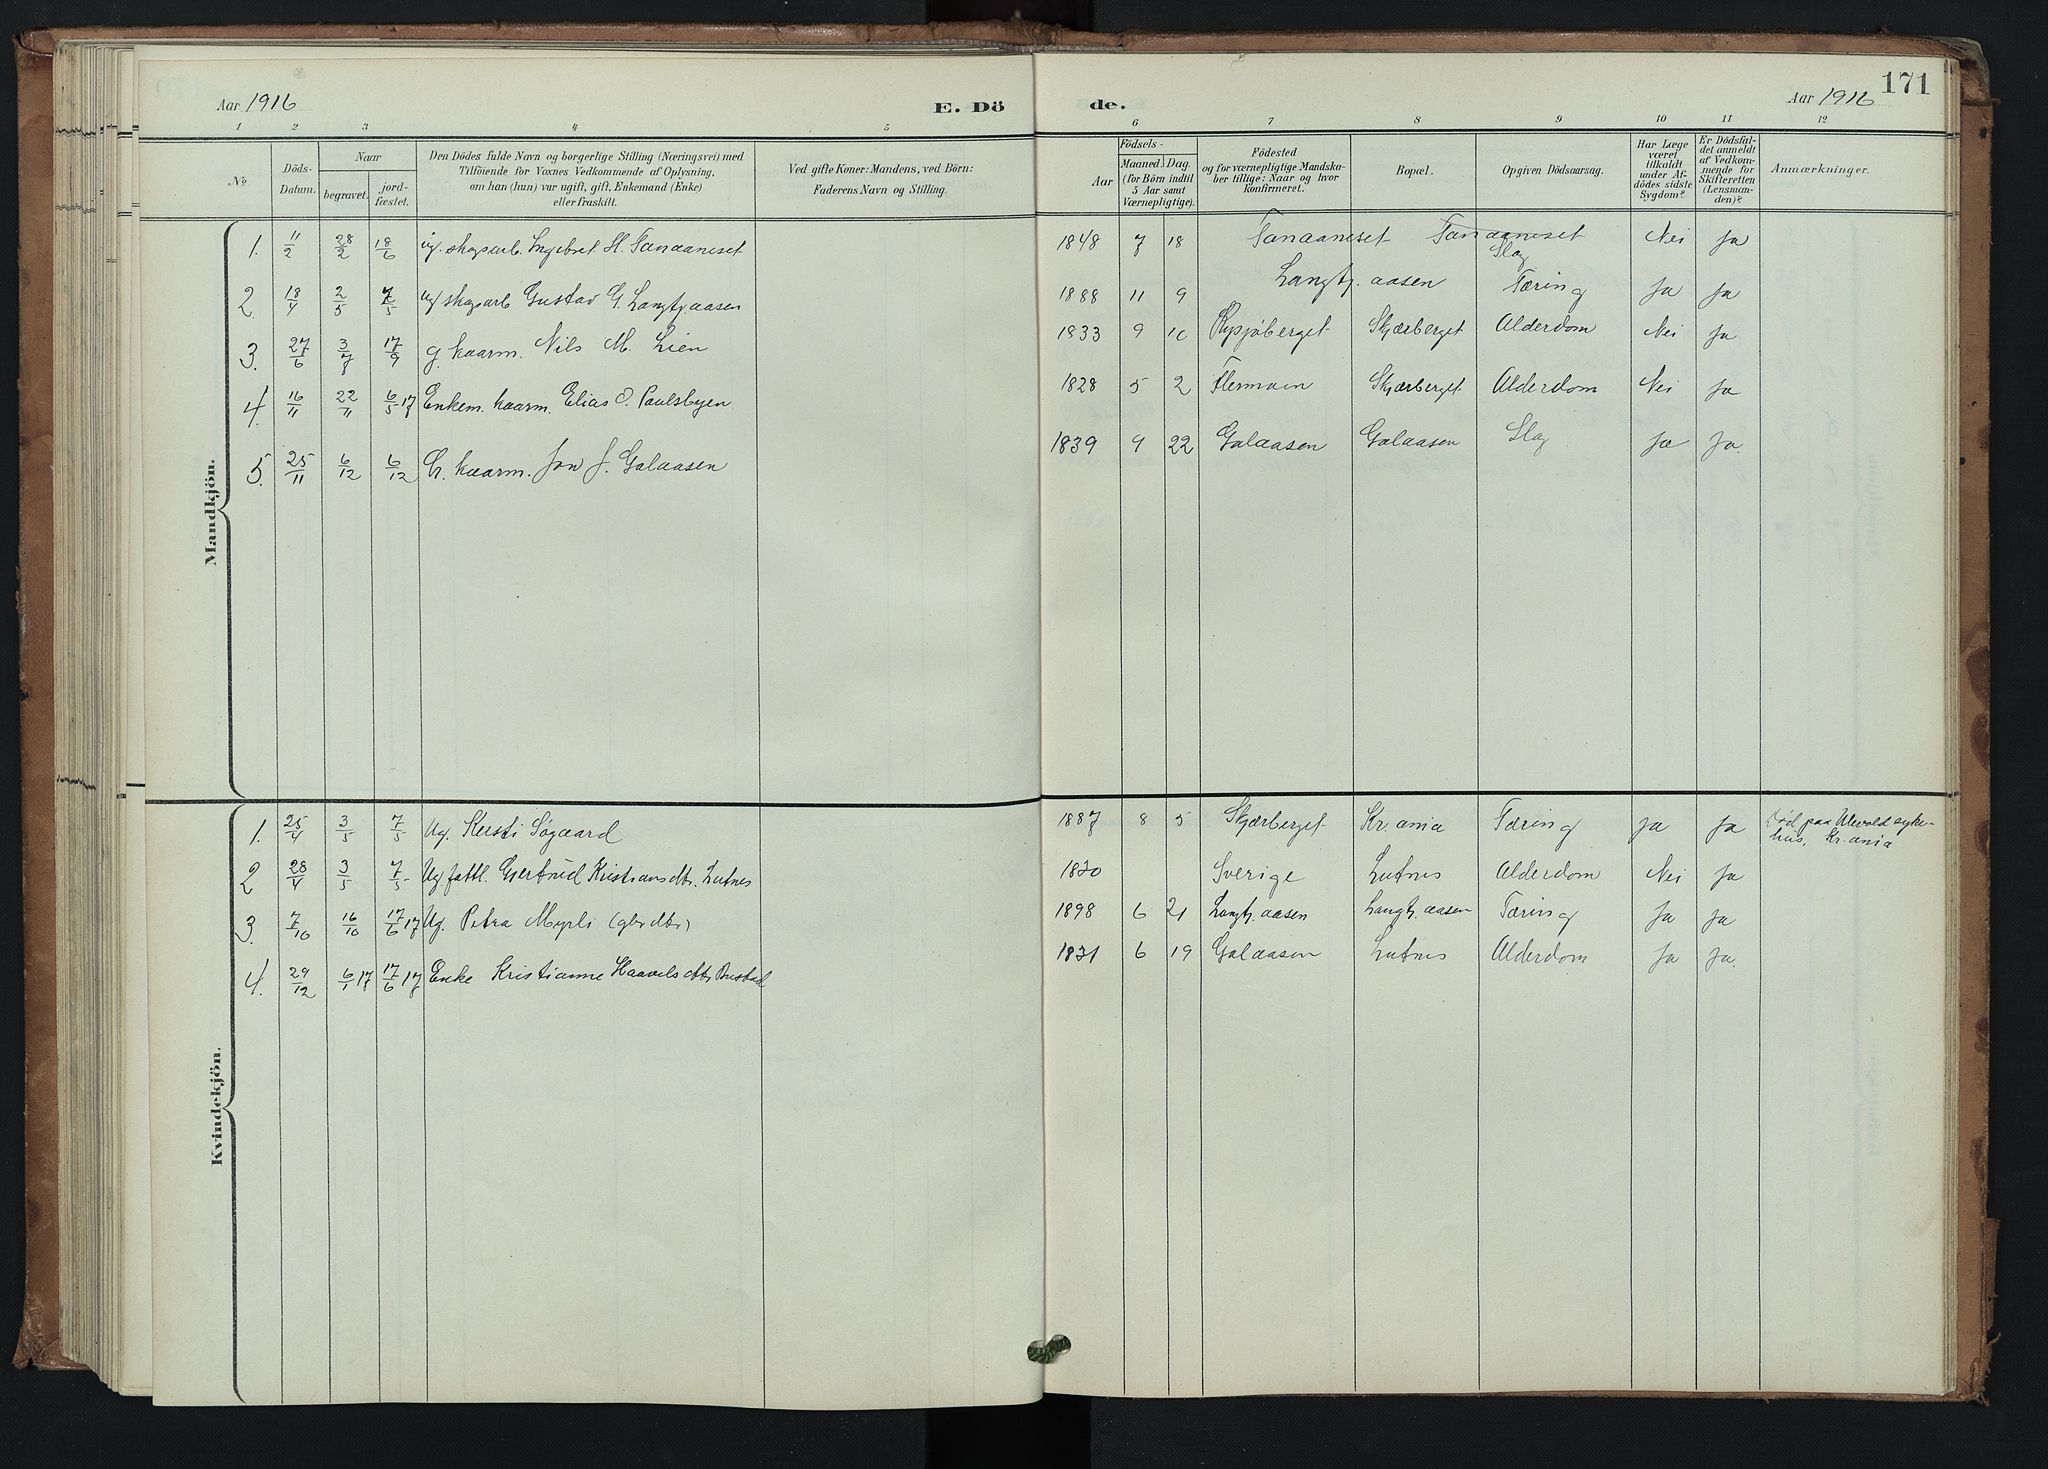 Aar 1916 E. Dö de. Aar 1916 171
1 2 3 4 5 6 7 8 9 10 11 12
No.
Döds-
Datum.
Naar
begravet.
jord-
fæstet.
Den Dödes fulde Navn og borgerlige Stilling (Næringsvei) med
Tilföiende for Voxnes Vedkommende af Oplysning,
om han (hun) var ugift, gift, Enkemand (Enke)
eller fraskilt.
Ved gifte Koner: Mandens, ved Börn:
Faderens Navn og Stilling.
Födsels-
Aar
Maaned. Dag.
(for Börn indtil
5 Aar samt
Værnepligtige).
Födested
og for værnepligtige Mandska-
ber tillige: Naar og hvor
konfirmeret.
Bopæl.
Opgiven Dödsaarsag.
Har Læge
været
tilkaldt
under Af-
dödes sidste
Sygdom?
Er Dödsfal-
det anmeldt
af Vedkom-
mende for
Skifteretten
(Lensman-
den)?
Anmærkninger.
Mandkjön.
1. 11/2 28/2 18/6 ug. skogsarb. Ingebret H. Tanaaneset 1848 7 18 Tanaaneset Tanaaneset Slag Nei Ja
2. 18/4 2/5 7/5 ug skogsarb Gustav G. Langtjaasen 1888 11 9 Langtj.aasen Tæring Ja Ja
3. 27/6 3/7 17/9 g. kaarm. Nils M. Lien 1833 9 10 Rysjøberget Skjærberget Alderdom Nei Ja
4. 16/11 22/11 6/5 17 Enkem. kaarm. Elias O. Paulsbyen 1828 5 2 Flermoen Skjærberget Alderdom Nei Ja
5. 25/11 6/12 6/12 G. kaarm. Jon J. Galaasen 1839 9 22 Galaasen Galaasen Slag Ja Ja.
Kvindekjön.
1. 25/4 3/5 7/5 Ug. Kersti Søgaard 1887 8 5 Skjærberget Kr.ania Tæring Ja Ja Død paa Ulevold syke-
hus, Kr.ania
2 28/4 3/5 7/5 Ug fattl. Gjertrud Kristiansdtr. Lutnes 1830 Sverige Lutnes Alderdom Nei Ja
3. 7/10 16/10 17/6 17 Ug. Petra Myrli (gbr.dtr) 1898 6 21 Langtj.aasen Langtj.aasen Tæring Ja Ja
4. 29/12 6/1 17 17/6 17 Enke Kristianne Haavelsdtr. Bustad 1831 6 19 Galaasen Lutnes Alderdom Ja Ja.